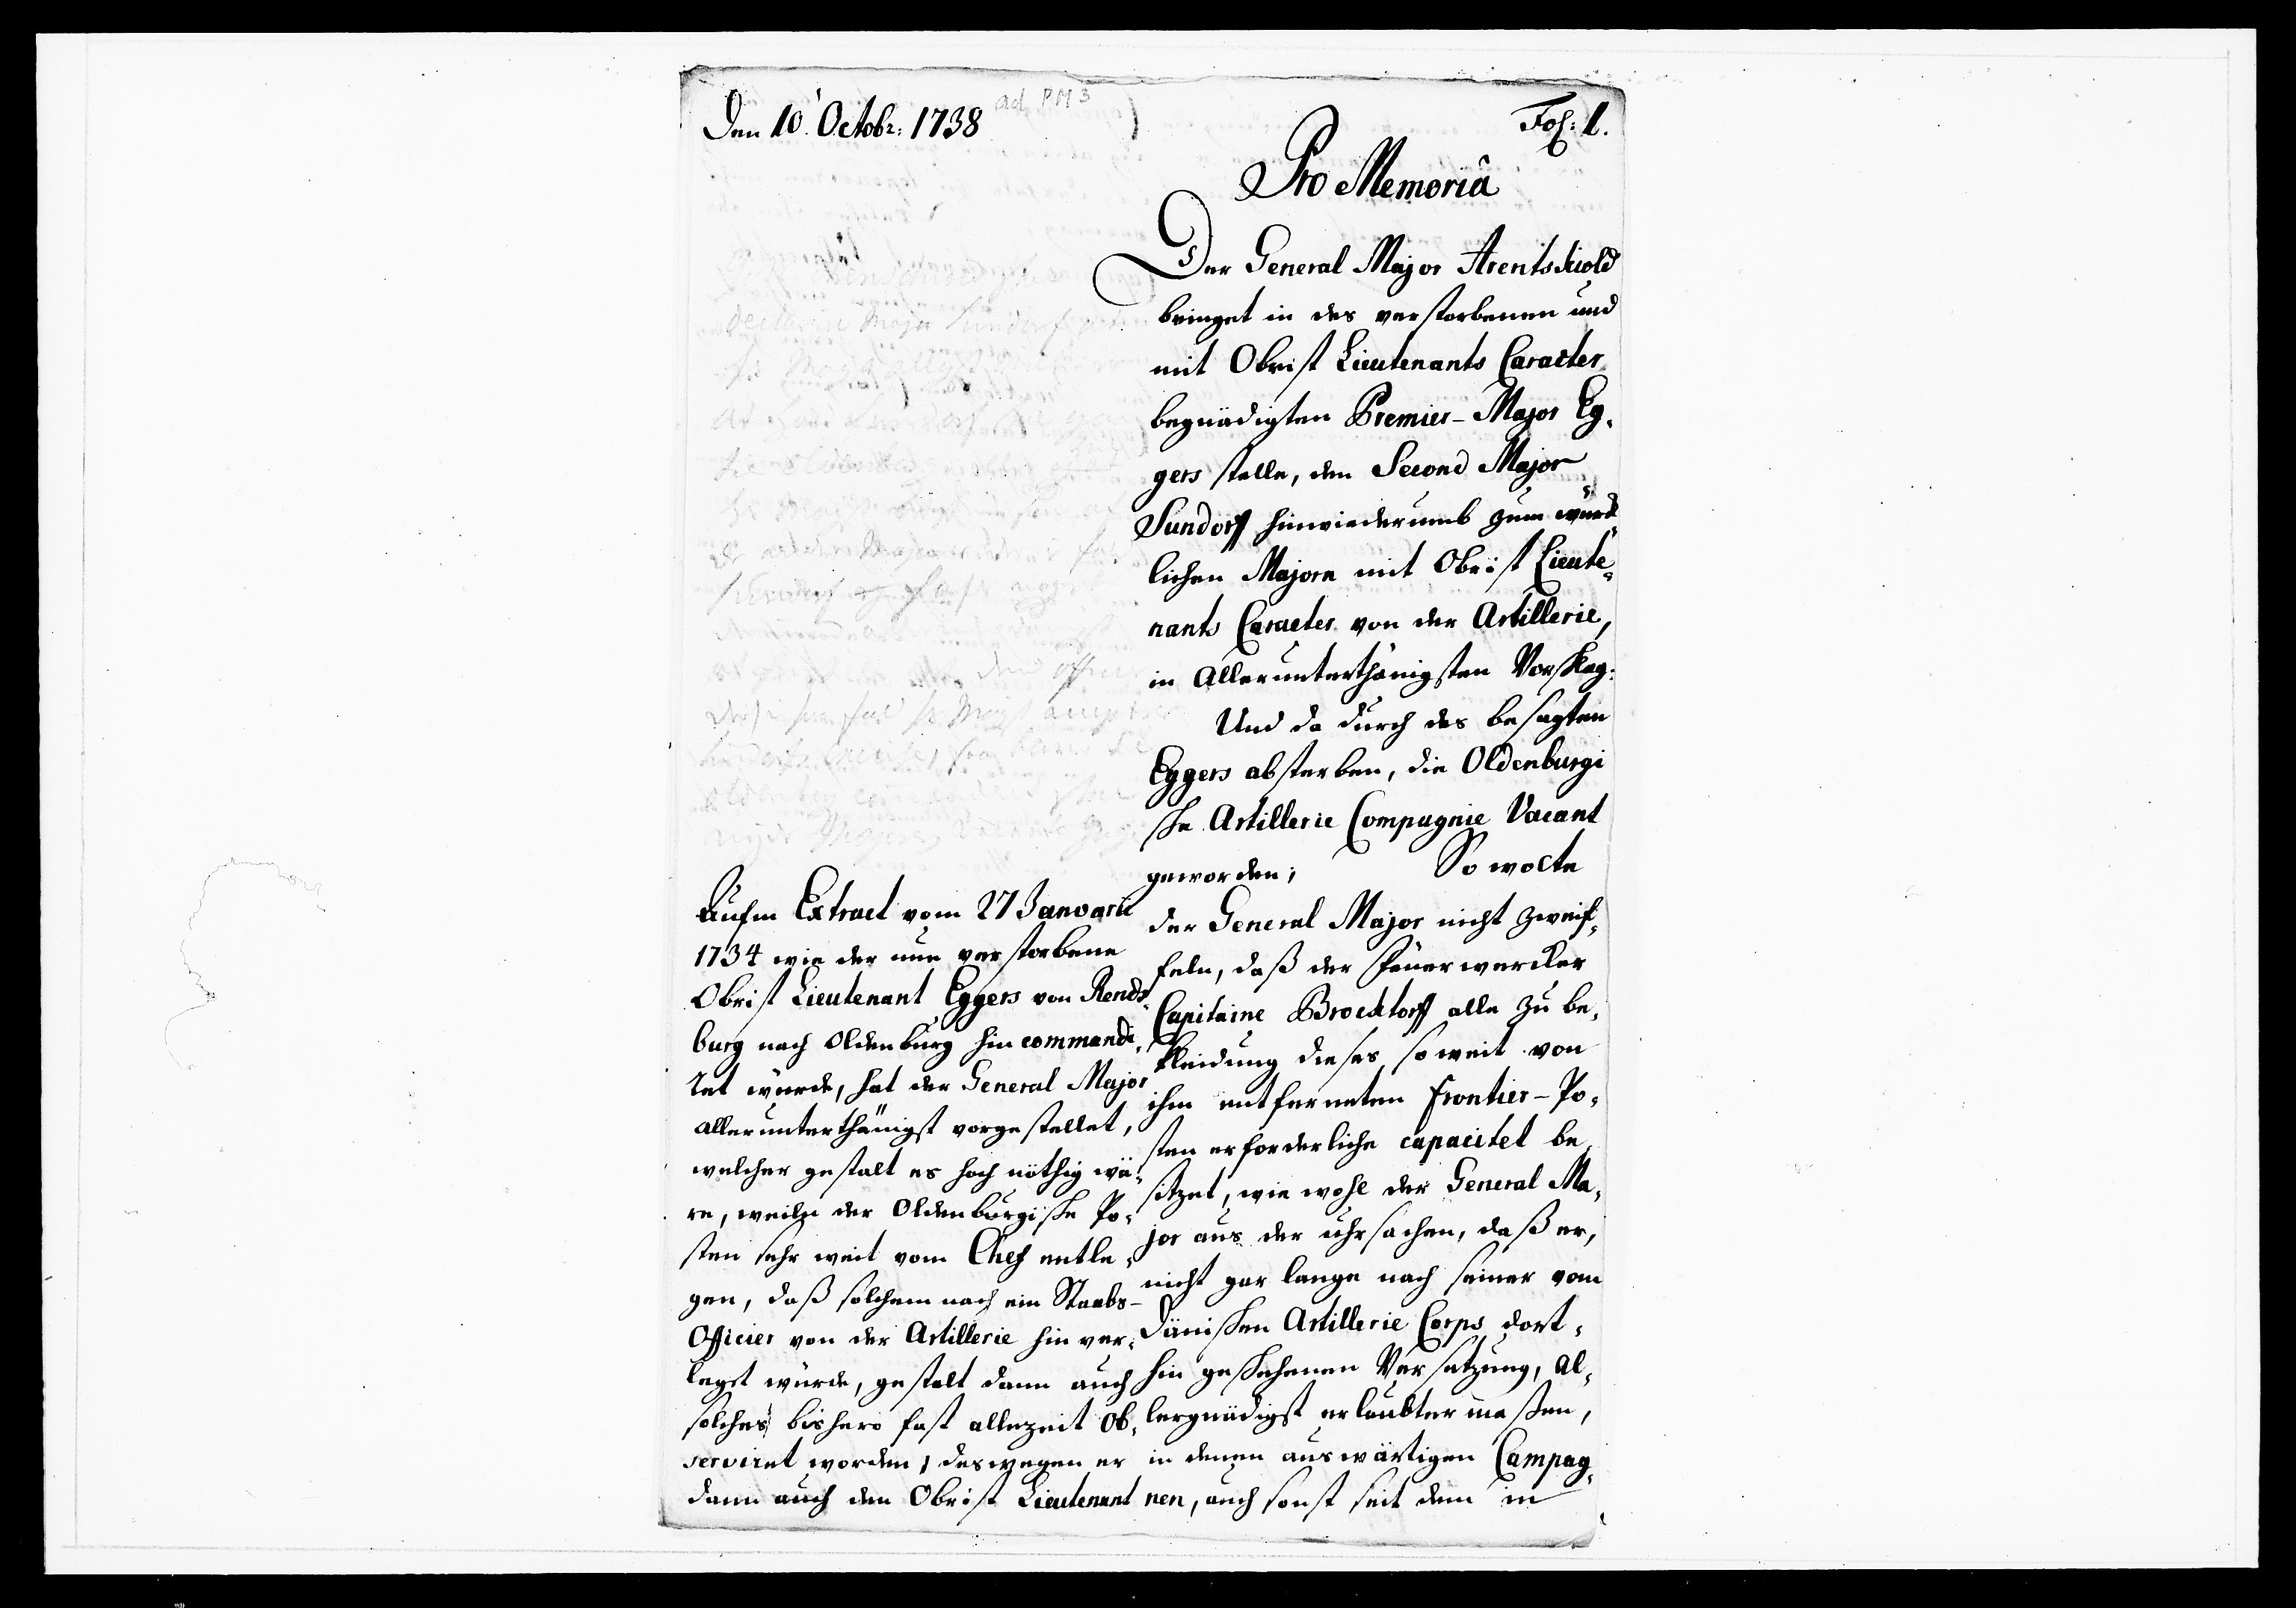 Den 10' Octobr: 1738
ad PM 3
Fol: 1.
Pro Memoriâ
Der General Major Arentskiold
bringet in des verstorbenen und
mit Obrist Lieutenants Caracter
begnädigten Premier-Major Eg,
gers stelle, den Second Major
Sundorff hinwiederumb zum würck,
lichen Majorn mit Obrist Lieute,
nants Caracter von der Artillerie,
in Allerunterthänigsten Vorschlag:
Und da durch des besagten
Eggers absterben, die Oldenburgi
sche Artillerie Compagnie Vacant
geworden; So wolte
der General Major nicht zweif,
feln, daß der Feuerwercker
Capitaine Brocktorff alle zu be,
kleidung dieses so weit von
ihm entferneten Frontier-Po,
sten erforderliche capacitet be,
sitzet, wie wohl der General Ma,
jor aus der uhrsachen, daß er,
nicht gar lange nach seiner vom
Dänischen Artillerie Corps dort,
hin geschehenen Versatzung, Al,
lergnädigst erlaubter maßen,
in denen auswärtigen Campag,
nen, auch sonst seit dem in
Aufm Extract vom 27 Januarii
1734 wie der nun verstorbene
Obrist Lieutenant Eggers von Rends,
burg nach Oldenburg hin commandi,
ret wurde, hat der General Major
allerunterthänigst vorgestellet,
welcher gestalt es hoch nöthig wä,
re, weiln der Oldenburgische Po,
sten sehr weit vom Chef entle,
gen, daß solchem nach ein Staabs-
Officier von der Artillerie hin ver,
legt würde, gestalt dann auch
solches bishero fast allezeit ob,
serviret worden, deswegen er
dann auch den Obrist Lieutenant